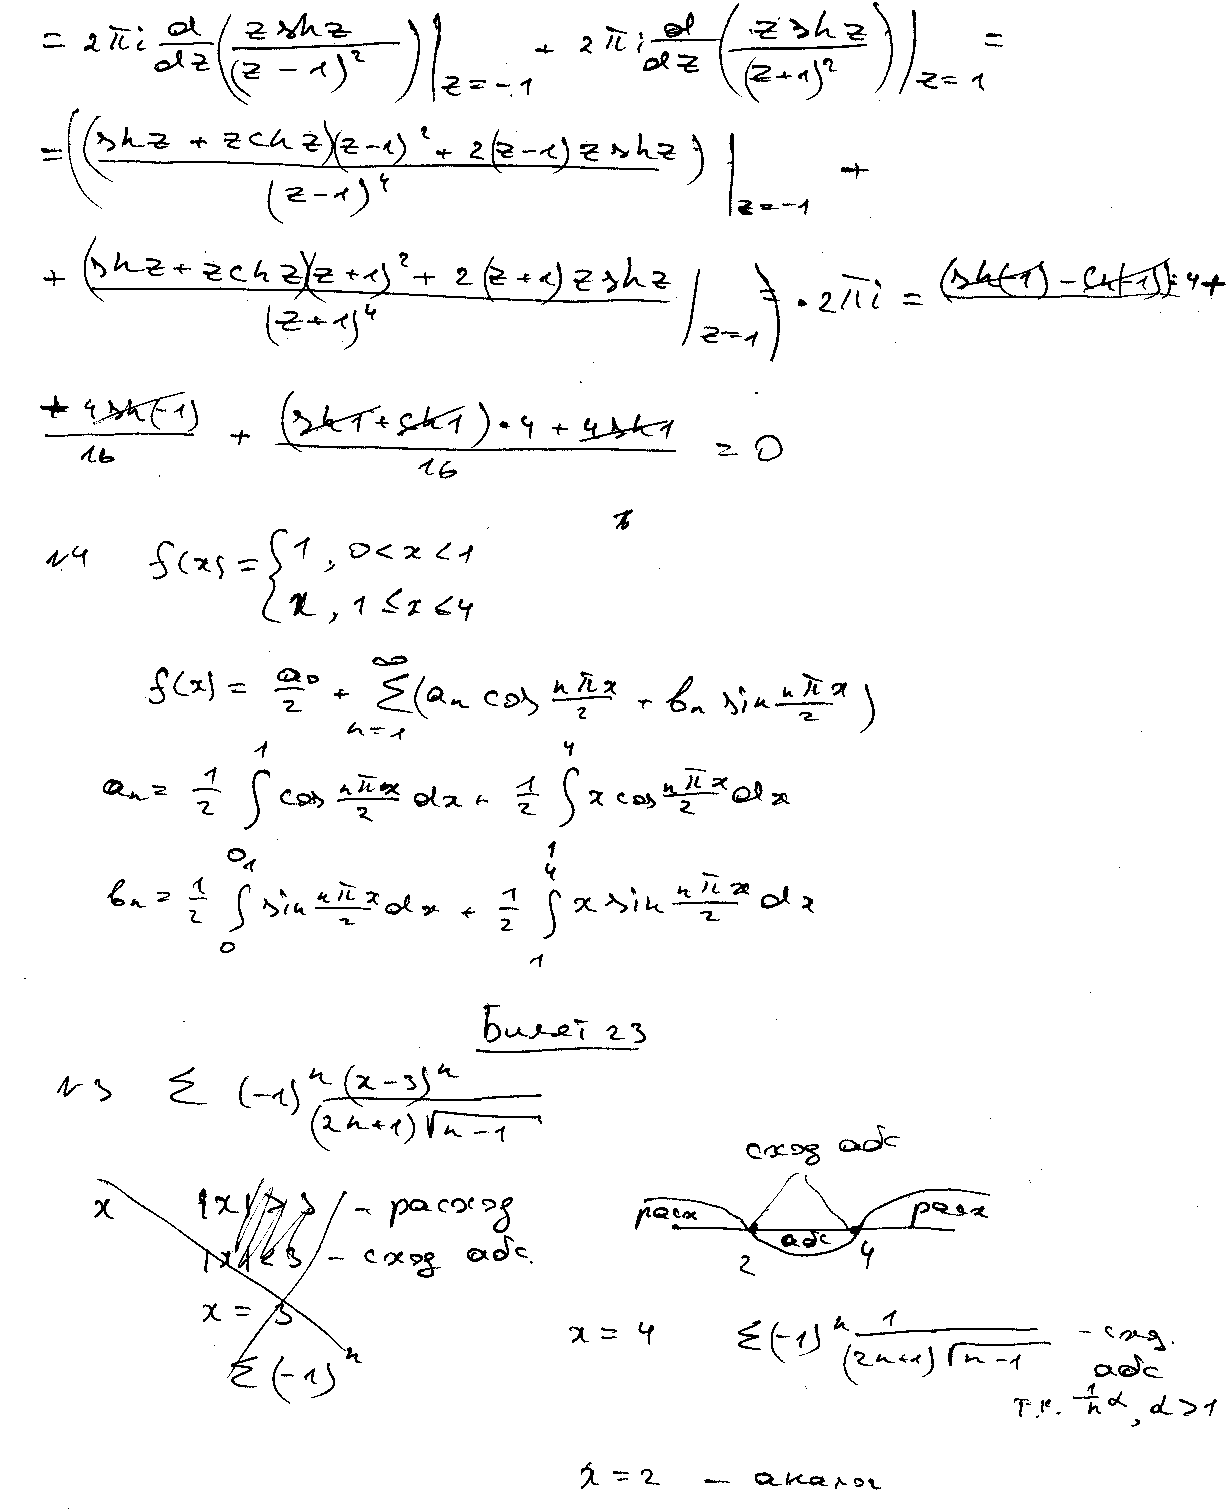 = 2πi d/dz (z shz / (z-1)²) |z=-1 + 2πi d/dz (z shz / (z+1)²) |z=1 =
= (((shz + z chz)(z-1)² + 2(z-1) z shz) / (z-1)⁴ |z=-1 +
+ ((shz + z chz)(z+1)² + 2(z+1) z shz) / (z+1)⁴ |z=1) · 2πi = (sh(-1) - ch(-1)) · 4 +
+ 4sh(-1) / 16 + ((sh1 + ch1) · 4 + 4sh1) / 16 = 0
№4 f(x) = { 1, 0<x<1
x, 1≤x≤4
f(x) = a₀/2 + ∑ₙ₌₁^∞ (aₙ cos nπx/2 + bₙ sin nπx/2)
aₙ = 1/2 ∫₀¹ cos nπx/2 dx + 1/2 ∫₁⁴ x cos nπx/2 dx
bₙ = 1/2 ∫₀¹ sin nπx/2 dx + 1/2 ∫₁⁴ x sin nπx/2 dx
Билет 23
№3 ∑ (-1)ⁿ (x-3)ⁿ / (2n+1)√n-1
x |x|>3 - расход
|x|<3 - сход абс.
x = 3
∑(-1)ⁿ
сход абс
расх абс расх
2 4
x = 4 ∑(-1)ⁿ 1 / (2n+1)√n-1 - сход.
абс
т.к. 1/n^α, α>1
x = 2 - аналог